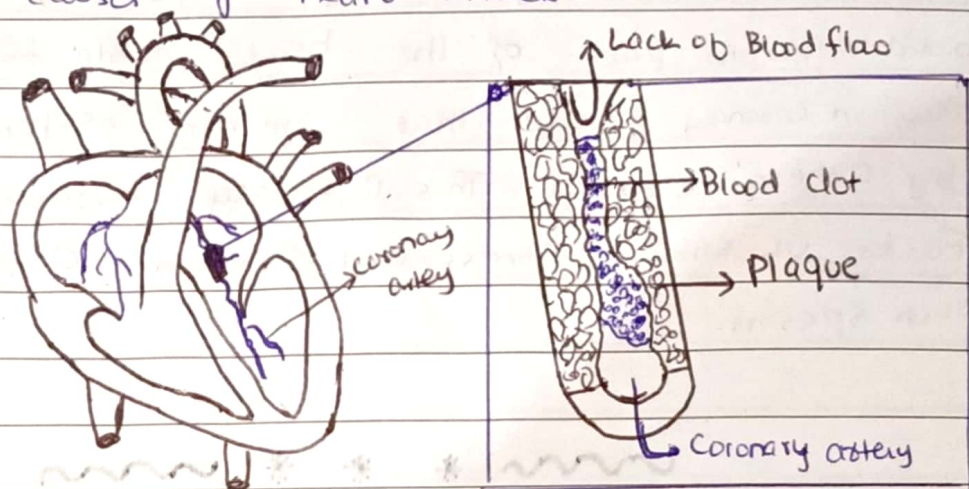 Lack of Blood flao
Blood clot
coronay
artey
Plaque
Coronary artery